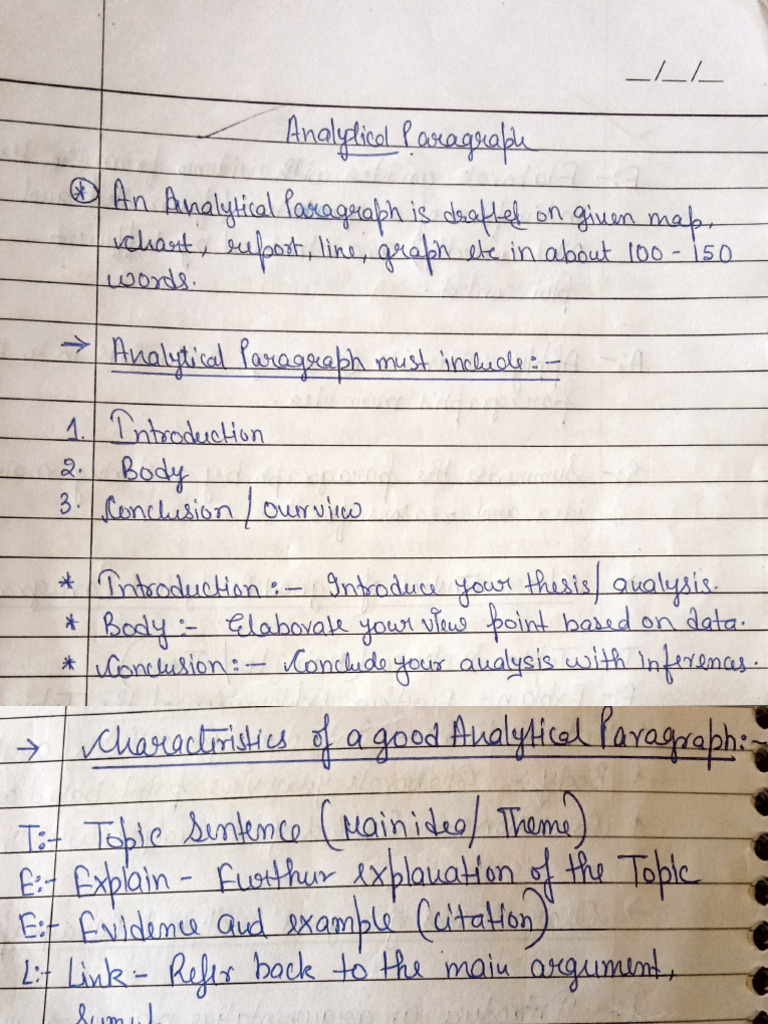 _/_/_
Analytical Paragraph
* An Analytical Paragraph is drafted on given map,
chart, report, line, graph etc in about 100 - 150
words.
→ Analytical Paragraph must include:-
1. Introduction
2. Body
3. Conclusion / overview
* Introduction:- Introduce your thesis/ analysis.
* Body:- Elaborate your view point based on data.
* Conclusion:- Conclude your analysis with inferences.
→ Characteristics of a good Analytical Paragraph:-
T:- Topic Sentence (Main idea/ Theme)
E:- Explain - Furthur explanation of the Topic
E:- Evidence and example (citation)
L:- Link - Refer back to the main argument,